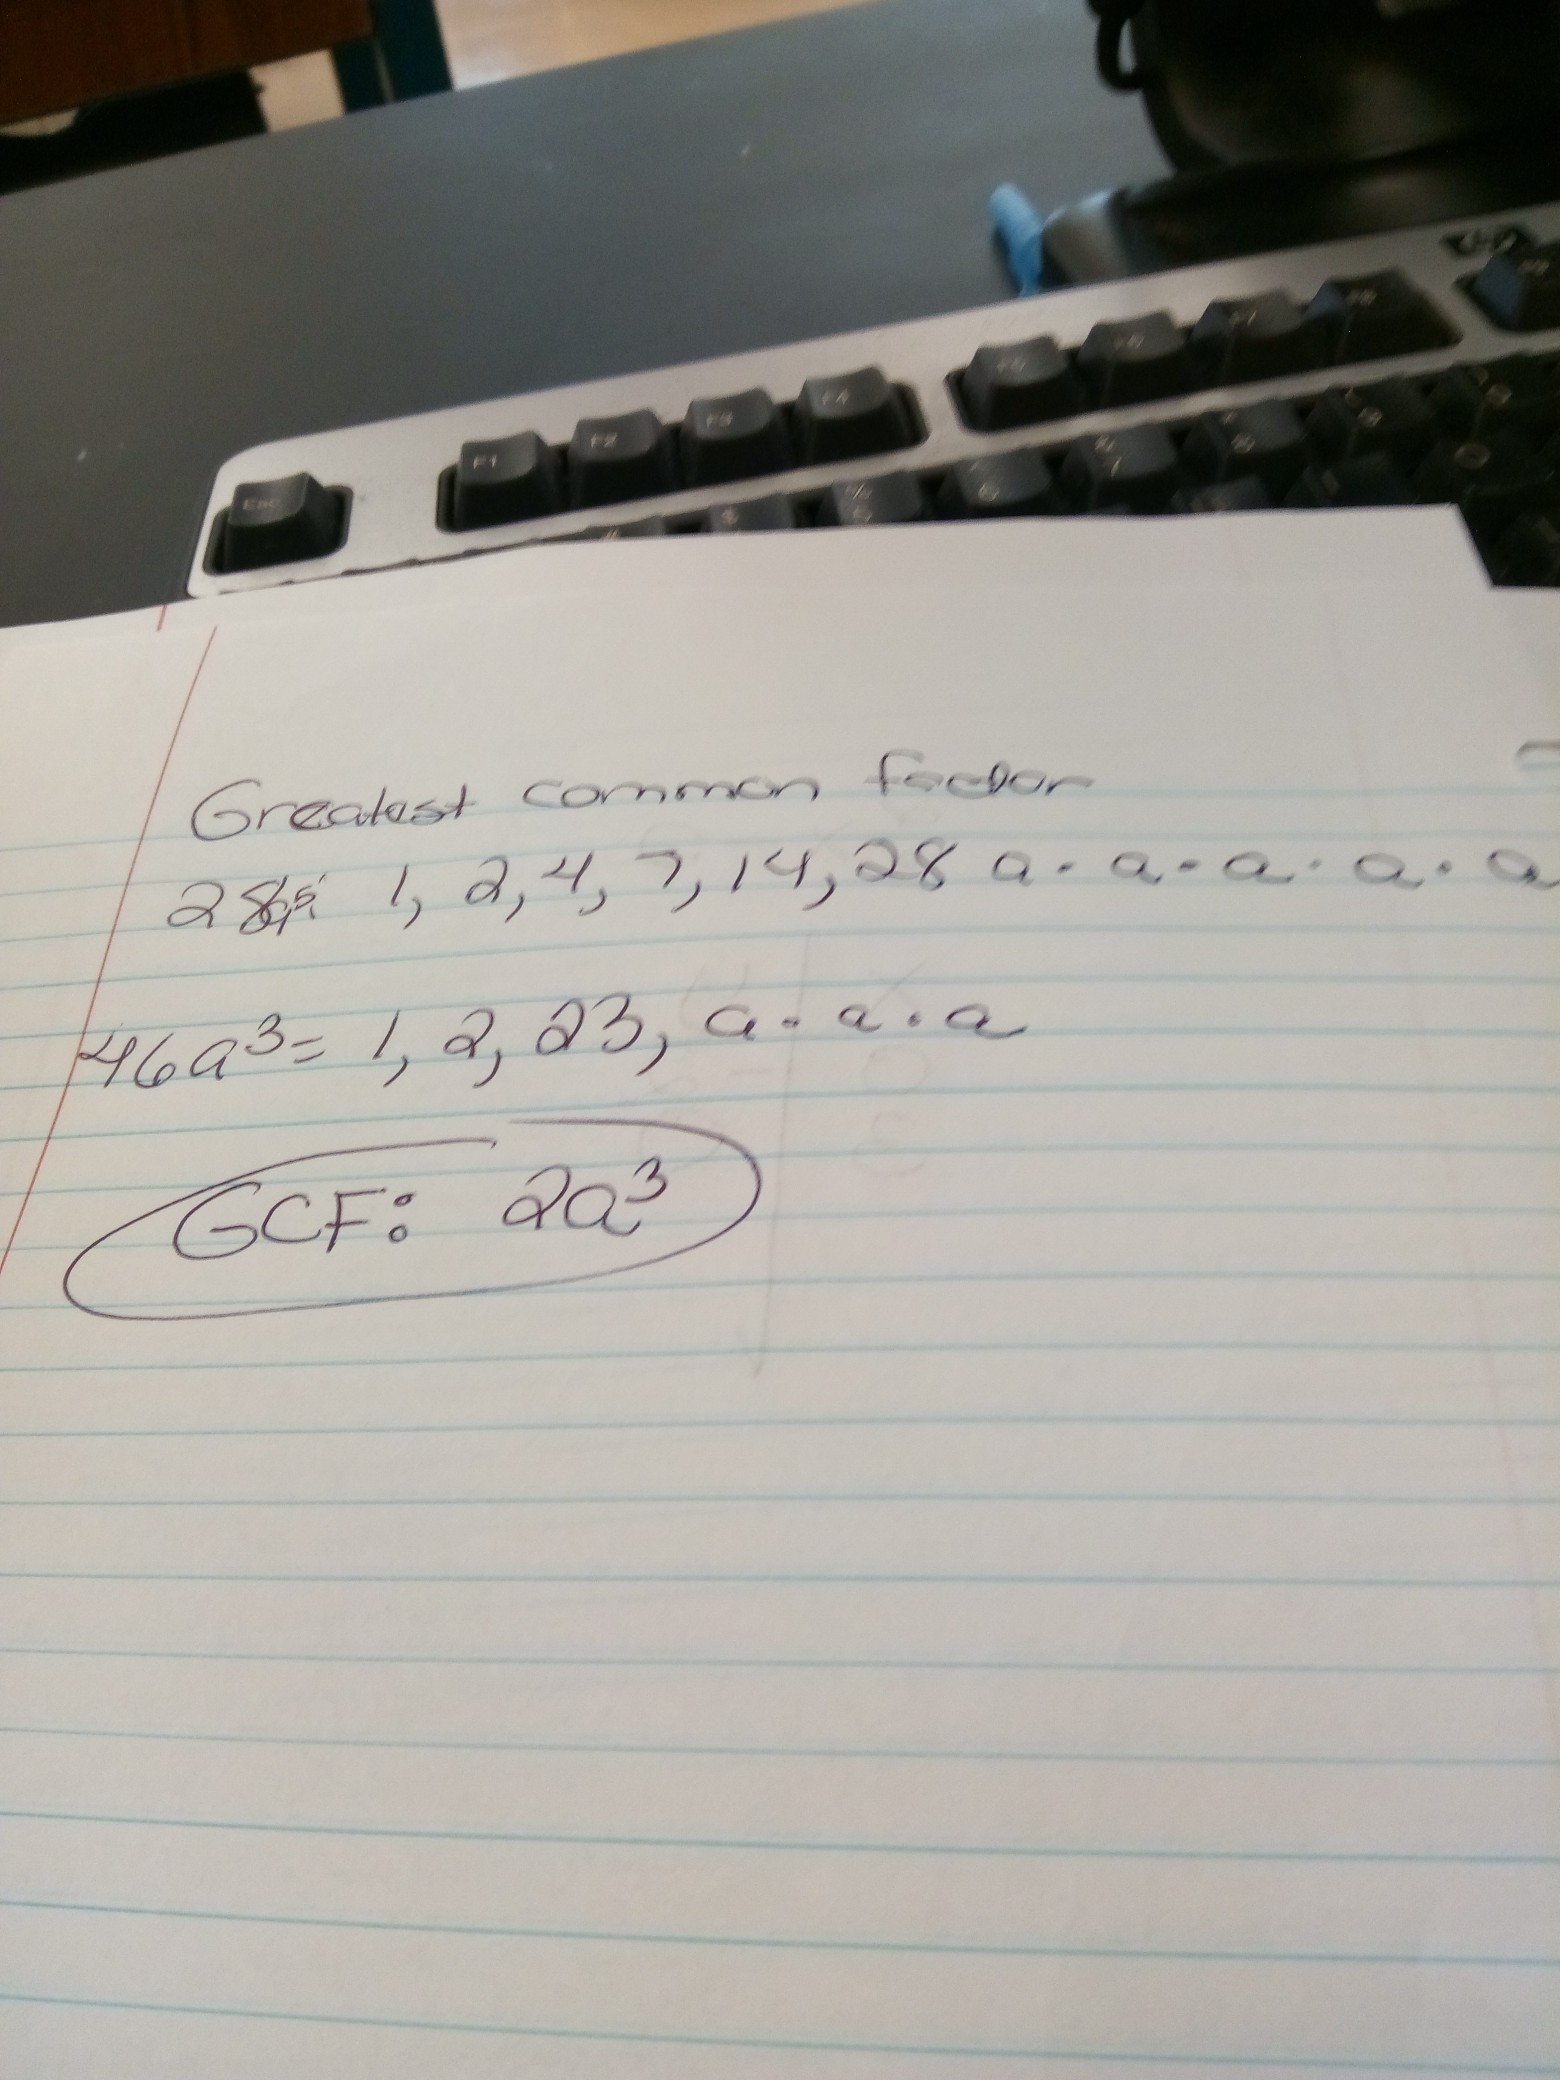 Esc F1 F2 F3 F4 F5 F6 F7 F8
Greatest common factor
28a⁵: 1, 2, 4, 7, 14, 28 a · a · a · a · a
46a³= 1, 2, 23, a · a · a
GCF: 2a³